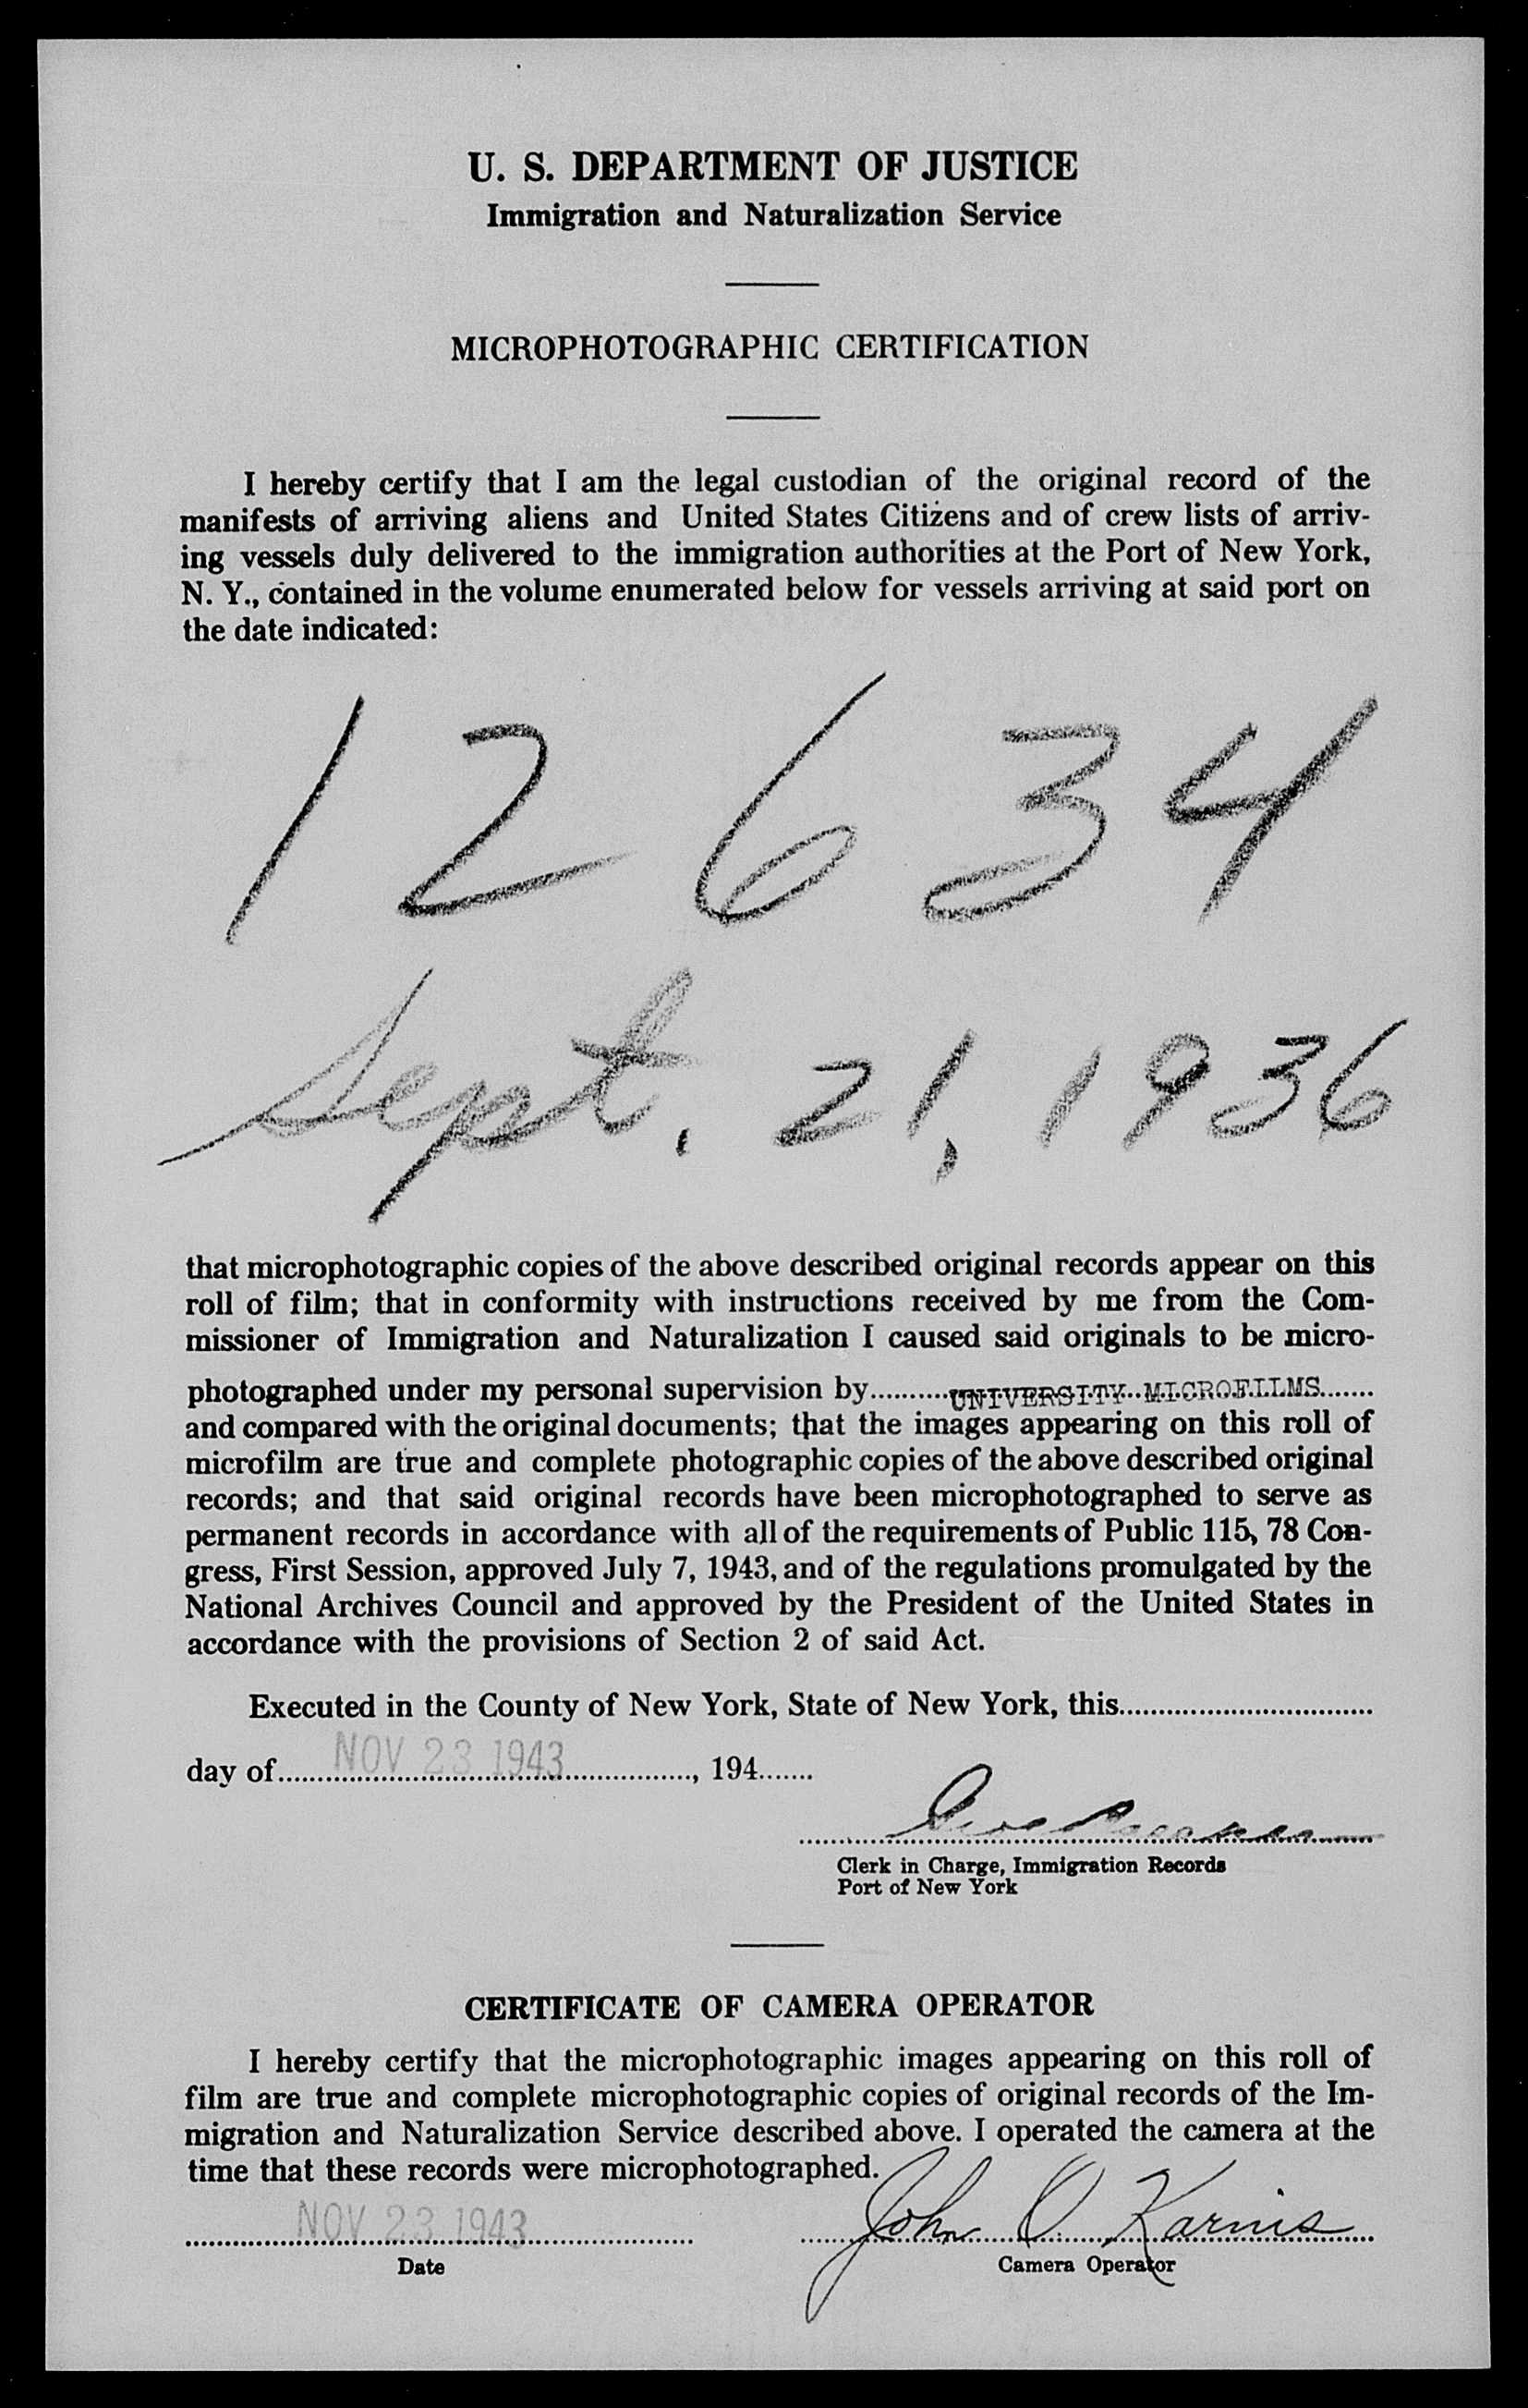 U. S. DEPARTMENT OF JUSTICE
Immigration and Naturalization Service
MICROPHOTOGRAPHIC CERTIFICATION
I hereby certify that I am the legal custodian of the original record of the
manifests of arriving aliens and United States Citizens and of crew lists of arriv-
ing vessels duly delivered to the immigration authorities at the Port of New York,
N. Y., contained in the volume enumerated below for vessels arriving at said port on
the date indicated:
12634
Sept. 21, 1936
that microphotographic copies of the above described original records appear on this
roll of film; that in conformity with instructions received by me from the Com-
missioner of Immigration and Naturalization I caused said originals to be micro-
photographed under my personal supervision by..........UNIVERSITY MICROFILMS.......
and compared with the original documents; that the images appearing on this roll of
microfilm are true and complete photographic copies of the above described original
records; and that said original records have been microphotographed to serve as
permanent records in accordance with all of the requirements of Public 115, 78 Con-
gress, First Session, approved July 7, 1943, and of the regulations promulgated by the
National Archives Council and approved by the President of the United States in
accordance with the provisions of Section 2 of said Act.
Executed in the County of New York, State of New York, this
day of NOV 23 1943, 194
Clerk in Charge, Immigration Records
Port of New York
CERTIFICATE OF CAMERA OPERATOR
I hereby certify that the microphotographic images appearing on this roll of
film are true and complete microphotographic copies of original records of the Im-
migration and Naturalization Service described above. I operated the camera at the
time that these records were microphotographed.
NOV 23 1943 John O Karnis
Date Camera Operator